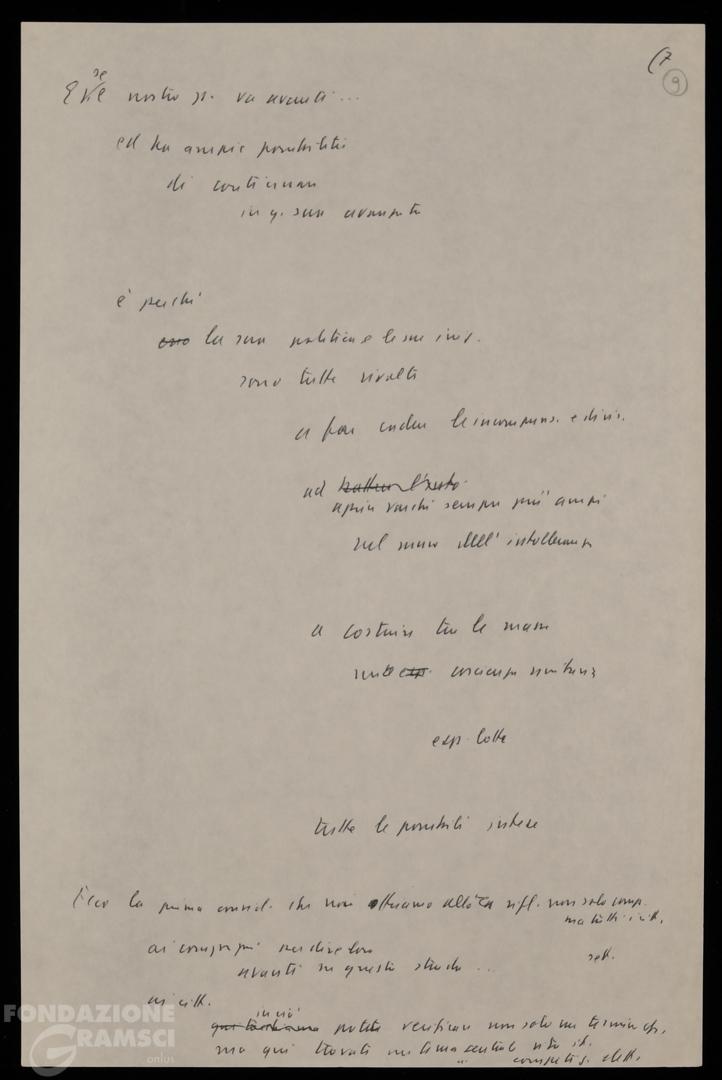 (7
9
se
E nostro p. va avanti...
ed ha ampie possibilità
di continuare
in q. sua avanzata
è perché
la sua politica e le sue iniz.
sono tutte rivolte
a far cadere le incompens. e divis.
ad
aprire varchi sempre più ampi
nel muro dell'intolleranza
a costruire tra le masse
coscienza unitaria
esp. lotte
tutte le possibili intese
Ecco la prima consid. che noi offriamo alla rifl. non solo comp.
ma tutti i citt.
ai compagni per dire loro
avanti su questa strada...
sett.
ai citt.
in ciò
potete verificare non solo un termine
ma qui trovate un tema central
competiz. elett.
FONDAZIONE
GRAMSCI
onlus